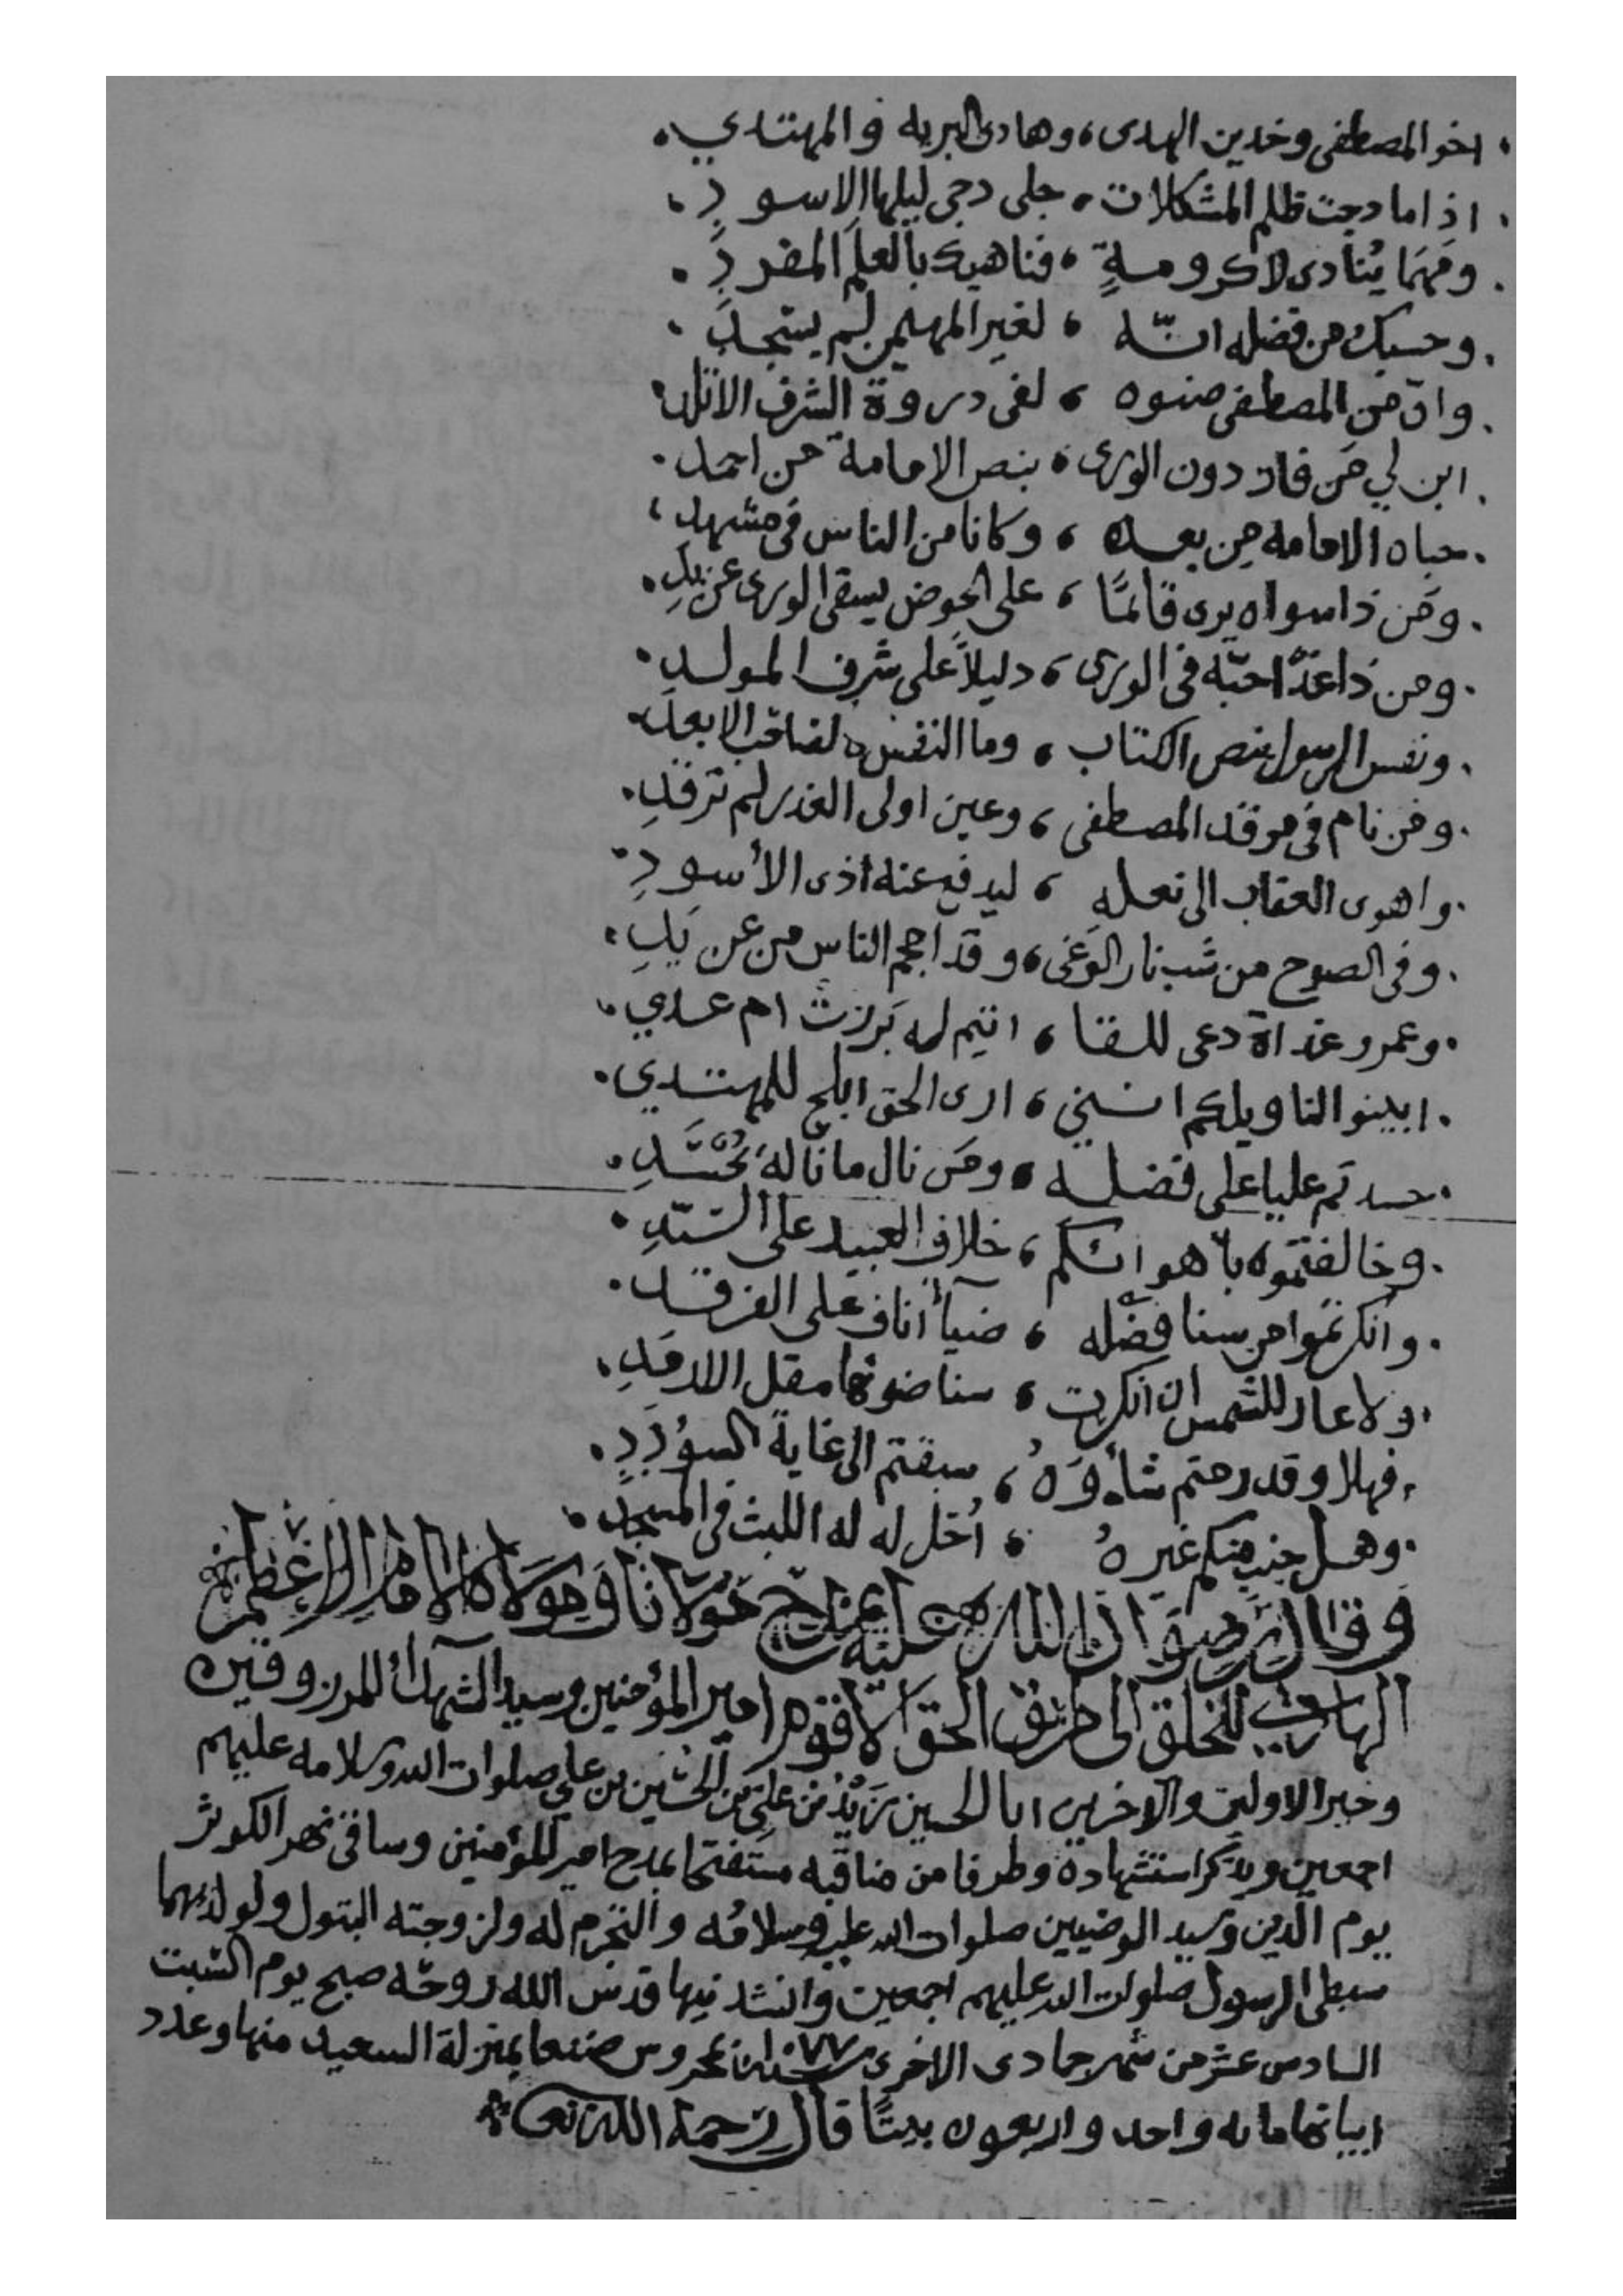 . اخو المصطفى وخدين الهدى ، وهادى البريه والمهتدي .
. اذا ما دجت ظلم المشكلات ، جلى دجى ليلها الاسودِ .
. ومَهمَا يُنادى لاكرومةٍ ، فناهيك بالعلَم المفردِ .
. وحسبك من فضله انّه ، لغير المهيمن لم يسجدِ .
. وانّ من المصطفى صنوه ، لفى دروة الشرف الاتلد .
. ابن لي مَن فاز دون الورى ، بنص الامامة من احمد .
. حباه الامامه من بعده ، وكانا من الناس فى مشهدِ ،
. ومَن ذا سواه يرى قائمًا ، على الحوض يسقى الورى عن يدِ .
. ومن ذا غدَا حبّه فى الورى ، دليلاً على شرف المولدِ .
. ونفس الرسول بنص الكتاب ، وما النفس كالصاحب الابعد .
. ومن نام فى مرقد المصطفى ، وعين اولى الغدر لم ترقدِ .
. واهوى العقاب الى نعلهِ ، ليدفع عنه اذى الأسودِ .
. وفى الصوح من شب نار الوَغى ، وقد احجم الناس من عن يَدِ .
. وعمرو غداة دعى للقا ، اتيم له بَرزتْ ام عدي .
. ابينوا لنا ويلكم انني ، ارى الحق ابلج للمهتدي .
. حسدتم عليا على فضله ، ومَن نال ما نالهُ يُحْسَدِ .
. وخالفتموه باهوائكم ، خلاف العبيد على السّيّدِ .
. وانكرتموا من سنا فضله ، ضياءً اناف على الفرقد .
. ولا عار للشمس ان انكرت ، سنا ضوئها مقل الارمَدِ ،
. فهلا وقد رمتم شأوَهُ ، سبقتم الى غاية السؤددِ .
. وهل جنب منكم غيرهُ ، اُحل له له اللبث فى المسجدِ .
وقال رضوان الله عليه يمدح مولانا ومولا كل الامام الاعظم
الهادي للخلق الى طريق الحق الاقوم امير المؤمنين وسيد الشهدآء المرزوقين
وخير الاولين والاخرين ابا الحسين زَيْدْ بْن علِيّ بن الحسَين بن على صلوات الله وسلامه عليهم
اجمعين ويذكر استشهاده وطرفا من مناقبه مستفتحا بمدح امير المؤمنين وساقى نهر الكوثر
يوم الدين وسيد الوصيين صلوات الله عليه وسلامُه والتحرم له ولزوجته البتول ولولديهما
سبطى الرسول صلوات الله عليهم اجمعين وانشد فيها قدس الله روحَه صبح يوم السّبت
السادس عشر من شهر جمادى الاخرى سنة ١٠٧٧ بمحروس صنعا بمنزلة السعيد منها وعدد
ابياتها مايه واحد واربعون بيتًا قال رَحمة الله تعا